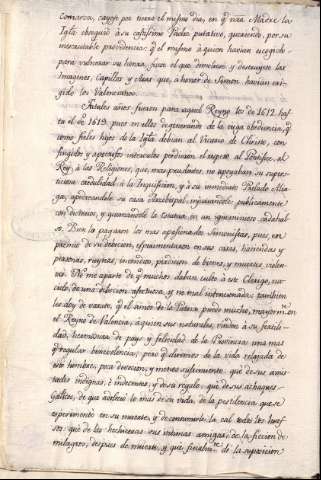 comarca, cayese por tierra el mismo dia, en que otra Madre la
Igla obsequió à su castissimo Padre putativo, queriendo, por su
inexcrutable providencia, q el mismo à quien havian escogido
para vulnerar su honra, fuera el que demoliese y destruyese las
Imagenes, Capillas y Aras que, à honor de Simon, havian eri-
gido los Valencianos.
Fatales años fueron para aquel Reyno los de 1612 has-
ta el de 1619 pues en ellos degenerando de la ciega obediencia, q
como fieles hijos de la Igla debian al Vicario de Christo, con
fingidos y apocrifos intervalos perdieron el respeto al Pontifice, al
Rey, à las Religiones, que, mas prudentes, no apoyaban su supers-
ticiosa credulidad, à la Inquisicion, y à su inmediato Prelado Alia-
ga, apedreandole su casa Arzobispal, injuriandole publicamente
con dicterios, y quemandole la Estatua, en un ignominioso cadahal-
so. Bien la pagaron los mas apasionados Simonistas, pues, en
premio de su devocion, experimentaron en sus casas, haciendas y
personas, ruynas, incendios, perdicion de bienes, y muertes violen-
tas. No me aparto de q muchos daban culto à este Clerigo, na-
cido de una devocion afectuosa, y no mal intencionada: tambien
les doy de varato, q el amor de la Patria puede mucho, mayormte en
el Reyno de Valencia, à quien sus naturales, viendo à su fertili-
dad, hermosura de pays y felicidad de la Provincia una mas
q regular benevolencia; pero q diremos de la vida relajada de
este hombre, poco devocion, y menos sufrimiento: qué de sus amis-
tades indignas, è indecentes, y de su regalo: qué de sus achaques
Galicos, de que adoleciò lo mas de su vida, de la pestilencia que se
experimentò en su muerte, q de consumirle, la cal todos los huesos:
sos: qué de los hechiceras sus intimas amigas, de la ficcion de
milagros, despues de muerto, y que finalmte de la suposicion